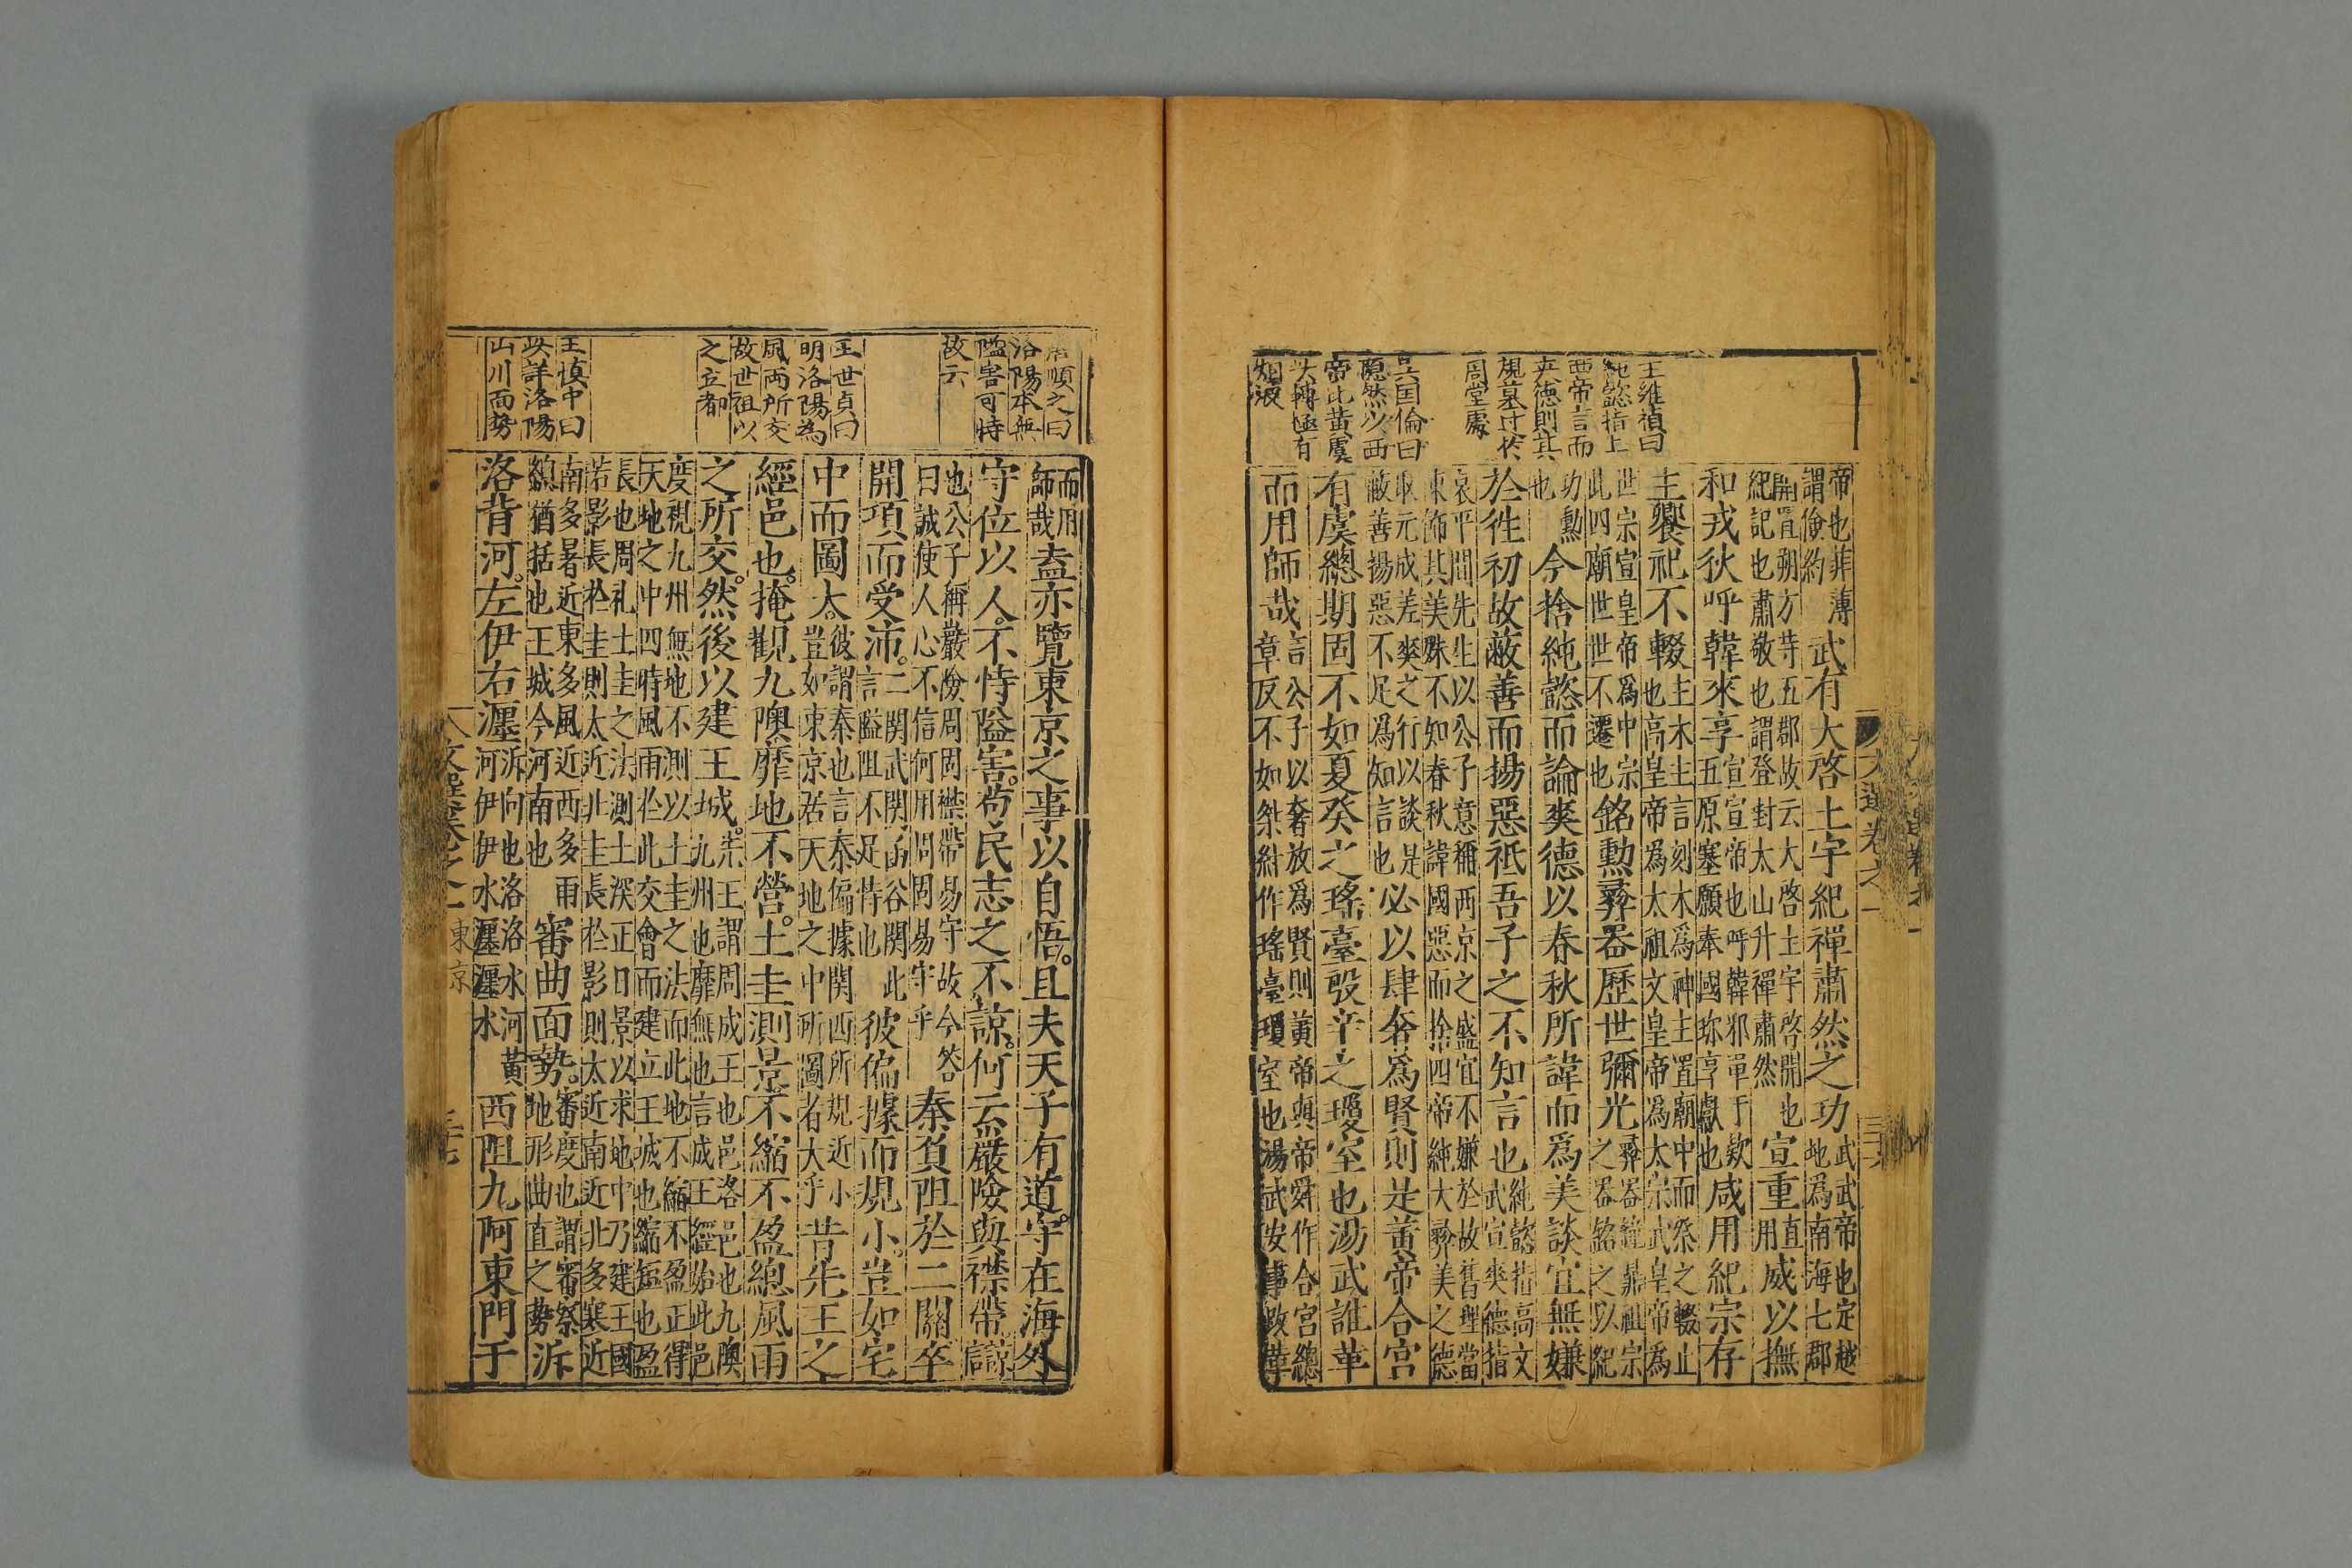 王維禎曰
純懿指上
西帝言而
爽德則其
規墓过於
周堂處
吳国倫曰
隱然以西
帝比黃虞
大轉極有
烟波
帝也菲薄
謂儉約
武有大啓土宇紀禪肅然之功
武武帝也定越
地爲南海七郡
開置朔方等五郡故云大啓土宇啓開也
紀記也肅敬也謂登封太山升禪肅然
宣重
直
用
威以撫
和戎狄呼韓來享
宣宣帝也呼韓邪單于款
五原塞願奉國珎享獻也
咸用紀宗存
主饗祀不輟
主木主言刻木爲神主置廟中而祭之輟止
也高皇帝爲太祖文皇帝爲太宗武皇帝爲
世宗宣皇帝爲中宗
此四廟世世不遷也
銘勲彝器歷世彌光
彝器鐘鼎祖宗
之器銘之以紀
功勲
也
今捨純懿而論爽德以春秋所諱而爲美談宜無嫌
於徃初故蔽善而揚惡祗吾子之不知言也
純懿指高文
武宣爽德指
哀平間先生以公子意稱西京之盛宜不嫌於故舊理當
東飾其美殊不知春秋諱國惡而捨四帝純大彝美之德
取元成差爽之行以談是
蔽善揚惡不足爲知言也
必以肆奢爲賢則是黃帝合宮
有虞總期固不如夏癸之瑤臺殷辛之瓊室也湯武誰革
而用師哉
言公子以奢放爲賢則黃帝與帝舜作合宮總
章反不如桀紂作瑤臺瓊室也湯武安事改革
文選卷之一
三十六
唐順之曰
洛陽本無
隘害可恃
故云
王世貞曰
明洛陽為
風雨所交
故世祖以
之立都
王慎中曰
此詳洛陽
山川面勢
而用
師哉
盍亦覽東京之事以自悟。且夫天子有道。守在海外
守位以人。不恃隘害。苟民志之不諒。何云嚴險與襟帶諒
也公子稱嚴險周固襟帶易守故今荅
曰誠使人心不信何用周固易守乎
秦負阻於二關卒
開項而受沛。
二関武関函谷関此
言隘阻不足恃也
彼偏據而規小。豈如宅
中而圖大。
彼謂秦也言秦偏據関西所規近小
豈如東京居天地之中所圖者大乎
昔先王之
經邑也。掩觀九隩。靡地不營。土圭測景。不縮不盈總風雨
之所交。然後以建王城。
先王謂周成王也邑洛邑也九隩
九州也靡無也言成王經始此邑
度視九州無地不測以土圭之法而此地不縮不盈正得
天地之中四時風雨於此交會而建立王城也縮短也盈
長也周礼土圭之法測土深正日景以求地中乃建王國
若影長於圭則太近北圭長於影則太近南近北多寒近
南多暑近東多風近西多雨
總猶括也王城今河南也
審曲面勢。
審度也謂審察
地形曲直之勢
泝
洛背河。左伊右瀍
泝向也洛洛水河黃
河伊伊水瀍瀍水
西阻九阿東門于
文選卷之一
東京
三十七